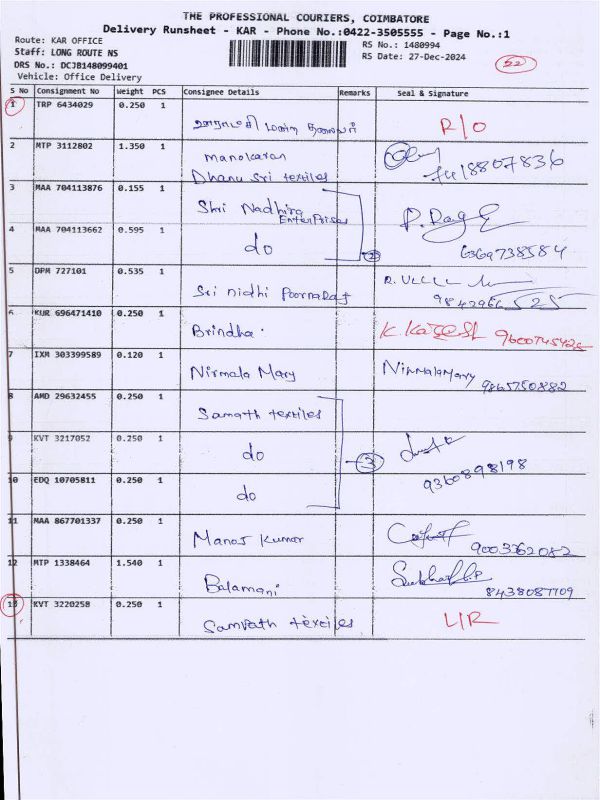 THE PROFESSIONAL COURIERS, COIMBATORE
Delivery Runsheet - KAR - Phone No.:0422-3505555 - Page No.:1
Route: KAR OFFICE
RS No.: 1480994
Staff: LONG ROUTE NS
RS Date: 27-Dec-2024
DRS No.: DCJB148099401
52
Vehicle: Office Delivery
S No Consignment No Weight PCS Consignee Details Remarks Seal & Signature
1 TRP 6434029 0.250 1
ஊராட்சி மன்ற தலைவர் R/O
2 MTP 3112802 1.350 1 Manokaran
Dhanu Sri textiles 7418807836
3 MAA 704113876 0.155 1 Shri Nadhira
EnterPrises
4 MAA 704113662 0.595 1 do 2 6369738584
5 DPM 727101 0.535 1
Sri nidhi
6 KUR 696471410 0.250 1
Brindha
7 IXM 303399589 0.120 1
Nirmala Mary NirmalaMary 9865750882
8 AMD 29632455 0.250 1
Samath textiles
9 KVT 3217052 0.250 1
do 3
10 EDQ 10705811 0.250 1
do 9360898198
11 MAA 867701337 0.250 1
Manoj Kumar 9003362082
12 MTP 1338464 1.540 1
Balamani 8438087109
13 KVT 3220258 0.250 1
Samrath textiles L/R